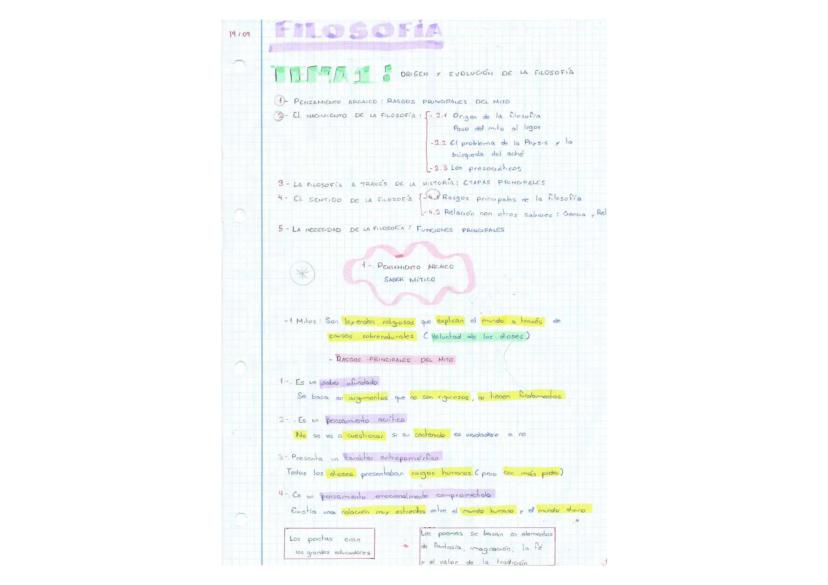 19/09
FILOSOFÍA
TEMA 1: ORIGEN Y EVOLUCIÓN DE LA FILOSOFÍA
1- PENSAMIENTO ARCAICO: RASGOS PRINCIPALES DEL MITO
2- EL NACIMIENTO DE LA FILOSOFÍA: - 2.1 Origen de la filosofía
Paso del mito al logos
- 2.2 El problema de la Physis y la
búsqueda del arché
- 2.3 Los presocráticos
3- LA FILOSOFÍA A TRAVÉS DE LA HISTORIA: ETAPAS PRINCIPALES
4- EL SENTIDO DE LA FILOSOFÍA - 4.1 Rasgos principales de la filosofía
- 4.2 Relación con otros saberes: Ciencia y Rel
5- LA NECESIDAD DE LA FILOSOFÍA: FUNCIONES PRINCIPALES
1- PENSAMIENTO ARCAICO
SABER MÍTICO
Mitos: Son leyendas religiosas que explican el mundo a través de
causas sobrenaturales (Voluntad de los dioses)
- RASGOS PRINCIPALES DEL MITO
1- Es un saber infundado
Se basa en argumentos que no son rigurosos, no tienen fundamentos
2- Es un pensamiento acrítico
No se va a cuestionar si su contenido es verdadero o no
3- Presenta un carácter antropomórfico
Todos los dioses presentaban rasgos humanos (pero con más poder)
4- Es un pensamiento emocionalmente comprometido
Existía una relación muy estrecha entre el mundo humano y el mundo divino
Los poetas eran
los grandes educadores
Los poemas se basan en elementos
de fantasía, imaginación, la fé
y el valor de la tradición